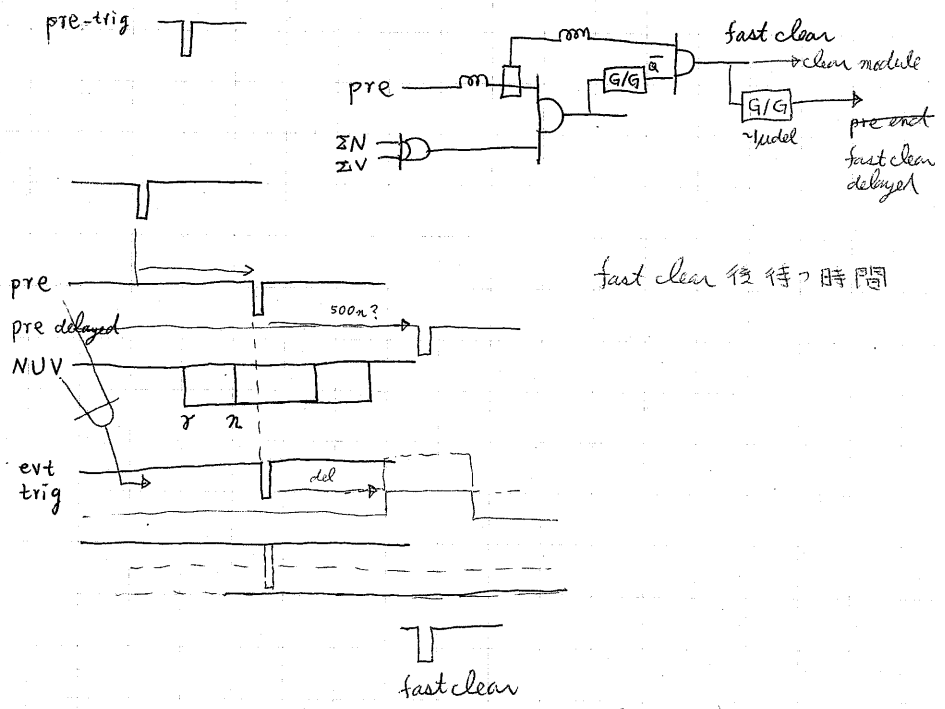 pre-trig
fast clear
→ clear module
pre
G/G
Q̅
G/G
~1μ del
ΣN
ΣV
pre end
fast clear
delayed
fast clear 後待つ時間
pre
pre delayed
500n?
NUV
γ
n
evt
trig
del
fast clear